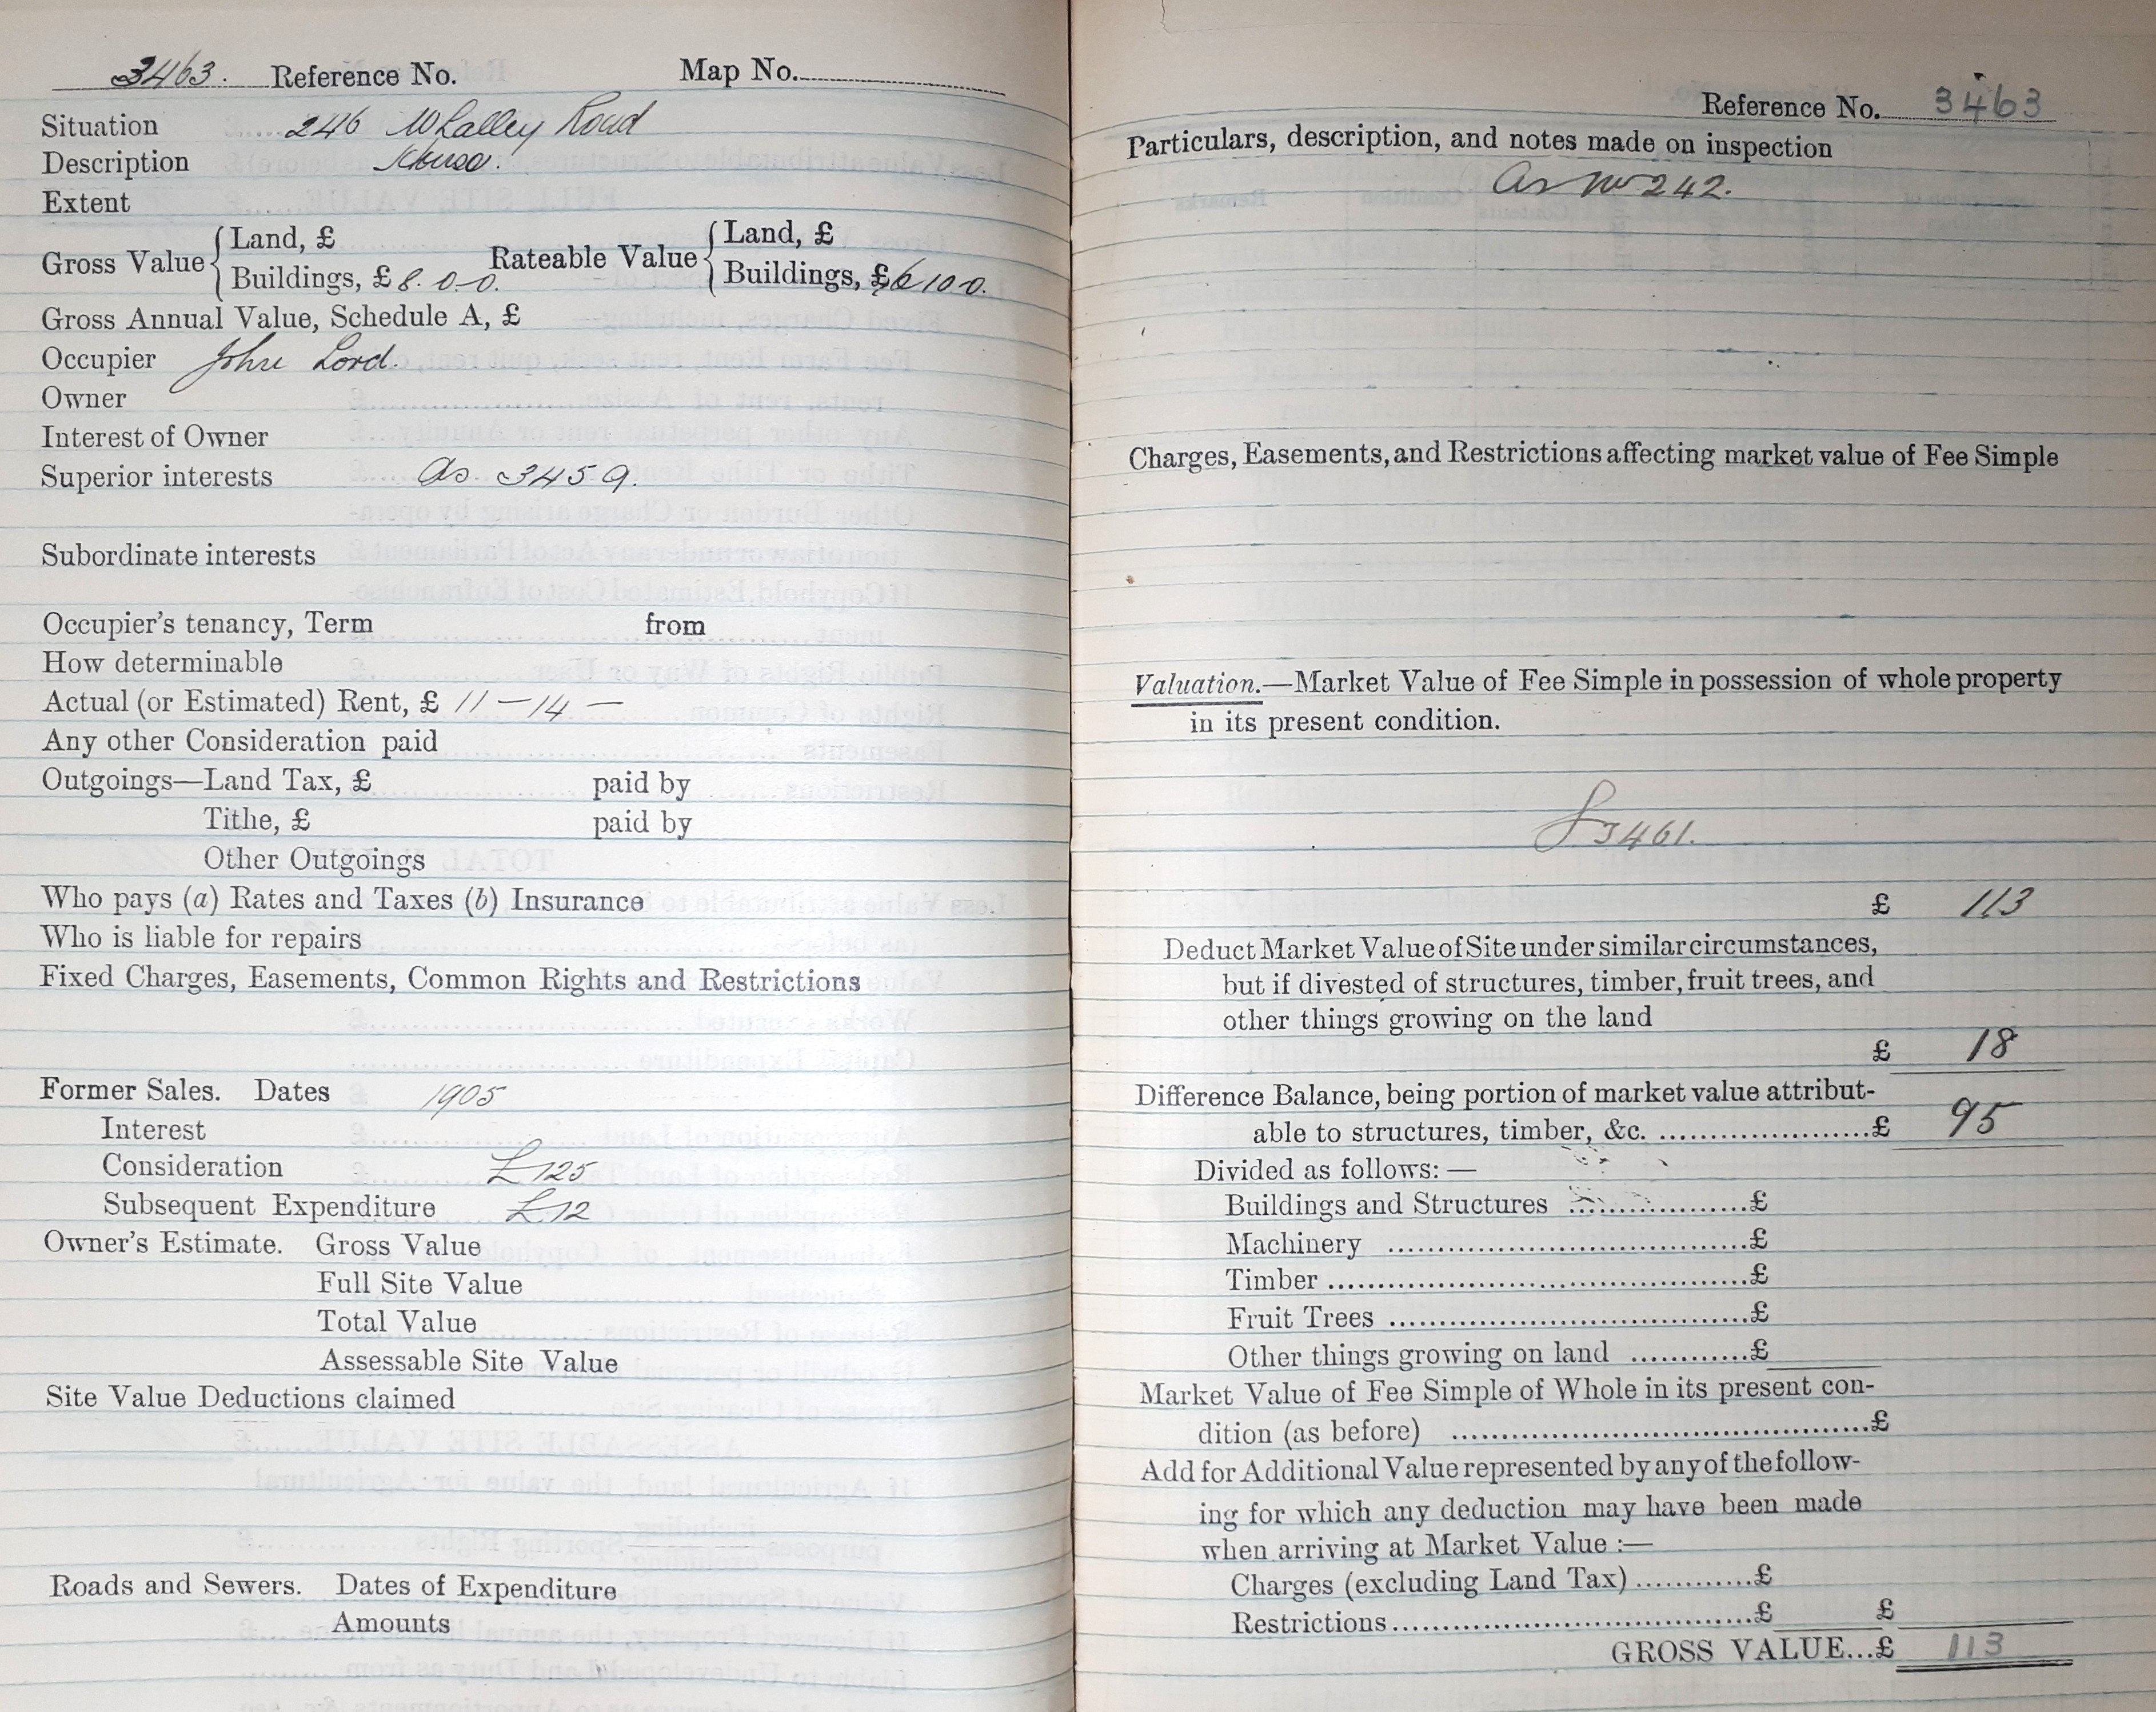 3463. Reference No. Map No.
Situation 246 Whalley Road
Description House.
Extent
Gross Value { Land, £ Rateable Value { Land, £
Buildings, £ 8. 0-0. Buildings, £ 6 10-0.
Gross Annual Value, Schedule A, £
Occupier John Lord.
Owner
Interest of Owner
Superior interests As 3459.
Subordinate interests
Occupier's tenancy, Term from
How determinable
Actual (or Estimated) Rent, £ 11 - 14 -
Any other Consideration paid
Outgoings—Land Tax, £ paid by
Tithe, £ paid by
Other Outgoings
Who pays (a) Rates and Taxes (b) Insurance
Who is liable for repairs
Fixed Charges, Easements, Common Rights and Restrictions
Former Sales. Dates 1905
Interest
Consideration £125
Subsequent Expenditure £12
Owner's Estimate. Gross Value
Full Site Value
Total Value
Assessable Site Value
Site Value Deductions claimed
Roads and Sewers. Dates of Expenditure
Amounts
Reference No. 3463
Particulars, description, and notes made on inspection
As No 242.
Charges, Easements, and Restrictions affecting market value of Fee Simple
Valuation.—Market Value of Fee Simple in possession of whole property
in its present condition.
3461.
£ 113
Deduct Market Value of Site under similar circumstances,
but if divested of structures, timber, fruit trees, and
other things growing on the land
£ 18
Difference Balance, being portion of market value attribut-
able to structures, timber, &c. ........£ 95
Divided as follows:—
Buildings and Structures ........£
Machinery ........£
Timber ........£
Fruit Trees ........£
Other things growing on land ........£
Market Value of Fee Simple of Whole in its present con-
dition (as before) ........£
Add for Additional Value represented by any of the follow-
ing for which any deduction may have been made
when arriving at Market Value :—
Charges (excluding Land Tax) ........£
Restrictions ........£ £
GROSS VALUE...£ 113